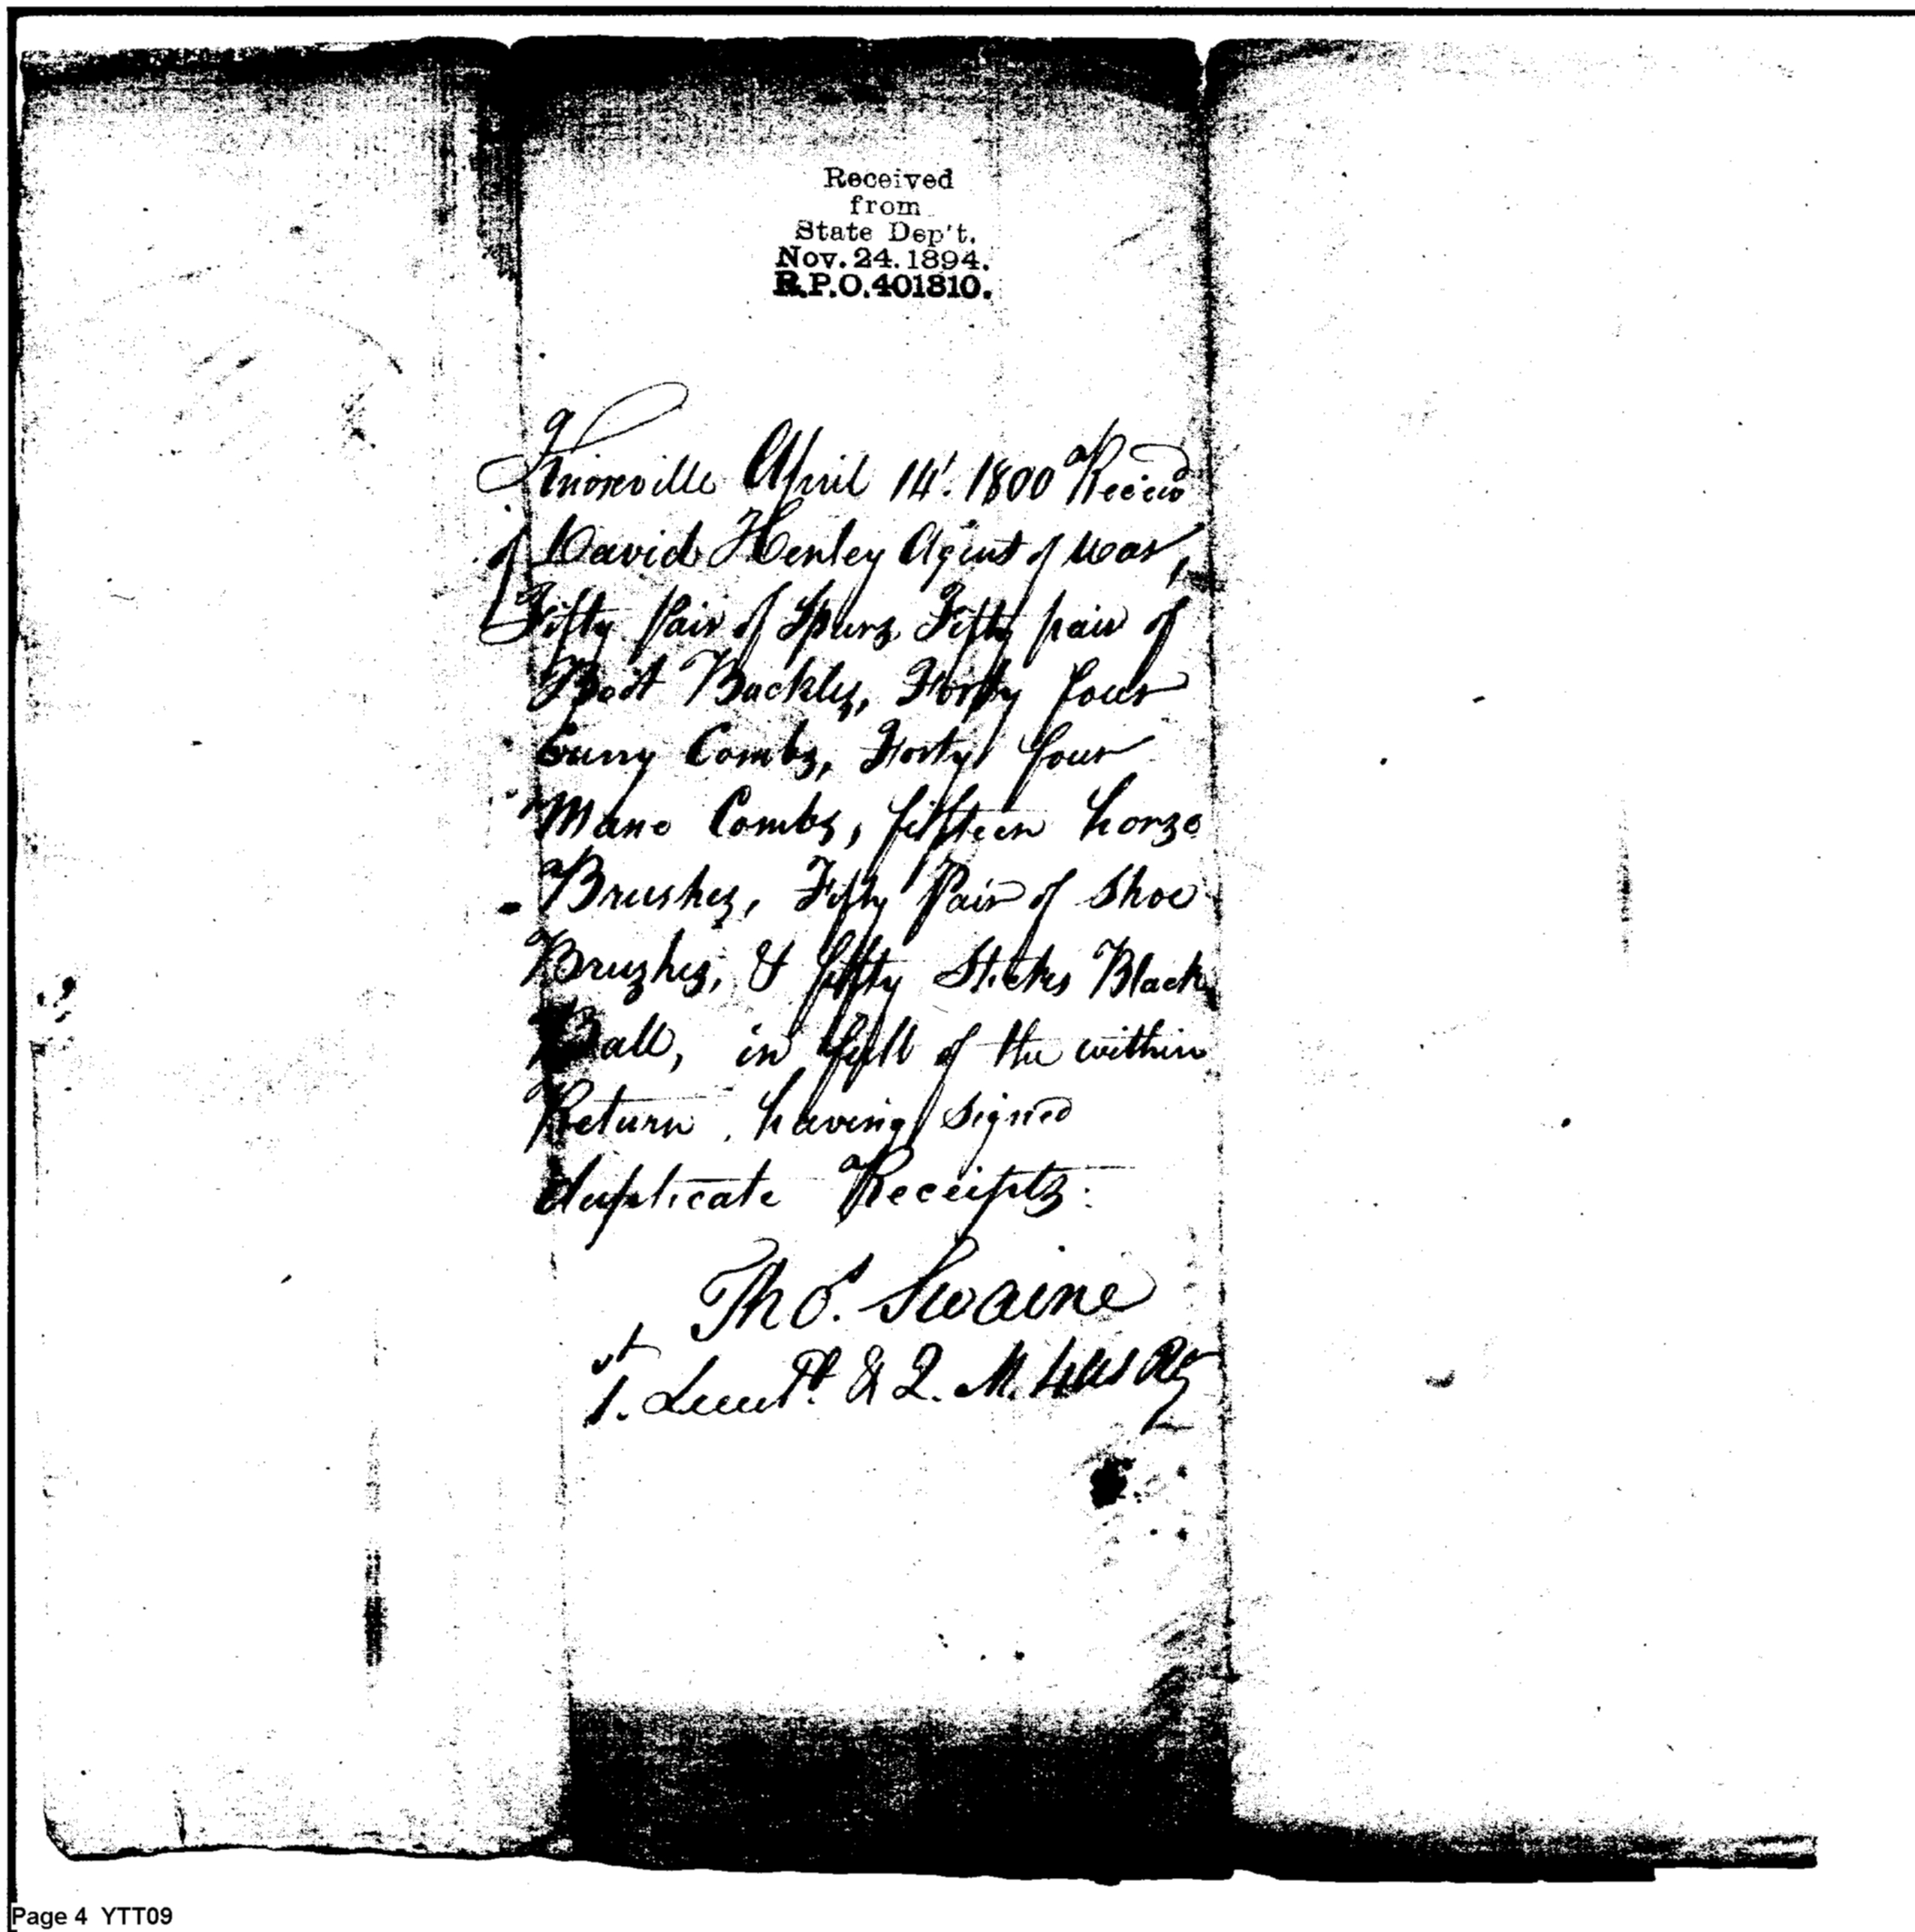 Received
from
State Dep't.
Nov. 24. 1894.
R.P.O. 401810.
Knoxville April 14'. 1800 Receivd
of David Henley Agent of War,
Fifty Pair of Spurs, Fifty pair of
Boot Buckles, Forty four
Curry Combs, Forty four
Mane Combs, fifteen horse
Brushes, Fifty Pair of Shoe
Brushes, & fifty Sticks Black
Ball, in full of the within
Return, having signed
duplicate Receipts:
Thos. Swaine
1st. Lieut. & Q. M. 4 US Rg
Page 4 YTT09